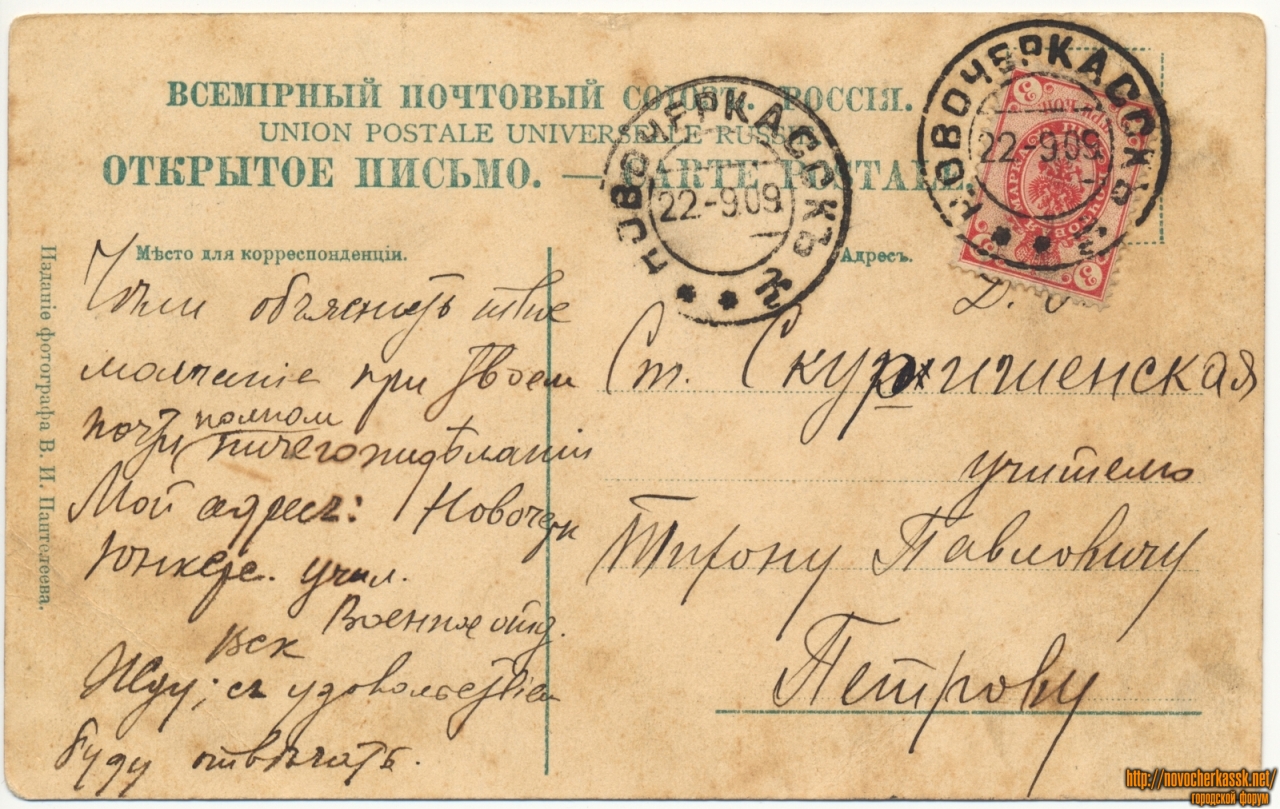 ВСЕМІРНЫЙ ПОЧТОВЫЙ СОЮЗЪ. РОССІЯ.
UNION POSTALE UNIVERSELLE RUSSIE
ОТКРЫТОЕ ПИСЬМО. — CARTE POSTALE.
НОВОЧЕРКАССКЪ
22-9.09
НОВОЧЕРКАССКЪ
22-9.09
3
3
3
Мѣсто для корреспонденціи.
Адресъ.
Изданіе фотографа В. И. Пантелеева.
Чѣмъ объяснить твое
молчаніе при Твоем
почти полном
ничегонидѣланіи
Мой адресъ: Новочерк
Юнкер. учил.
Военное отд.
Жду; съ удовольствіем
буду отвѣчать.
Ст. Скуришенская
учителю
Тихону Павловичу
Петрову
http://novocherkassk.net/
городской форум